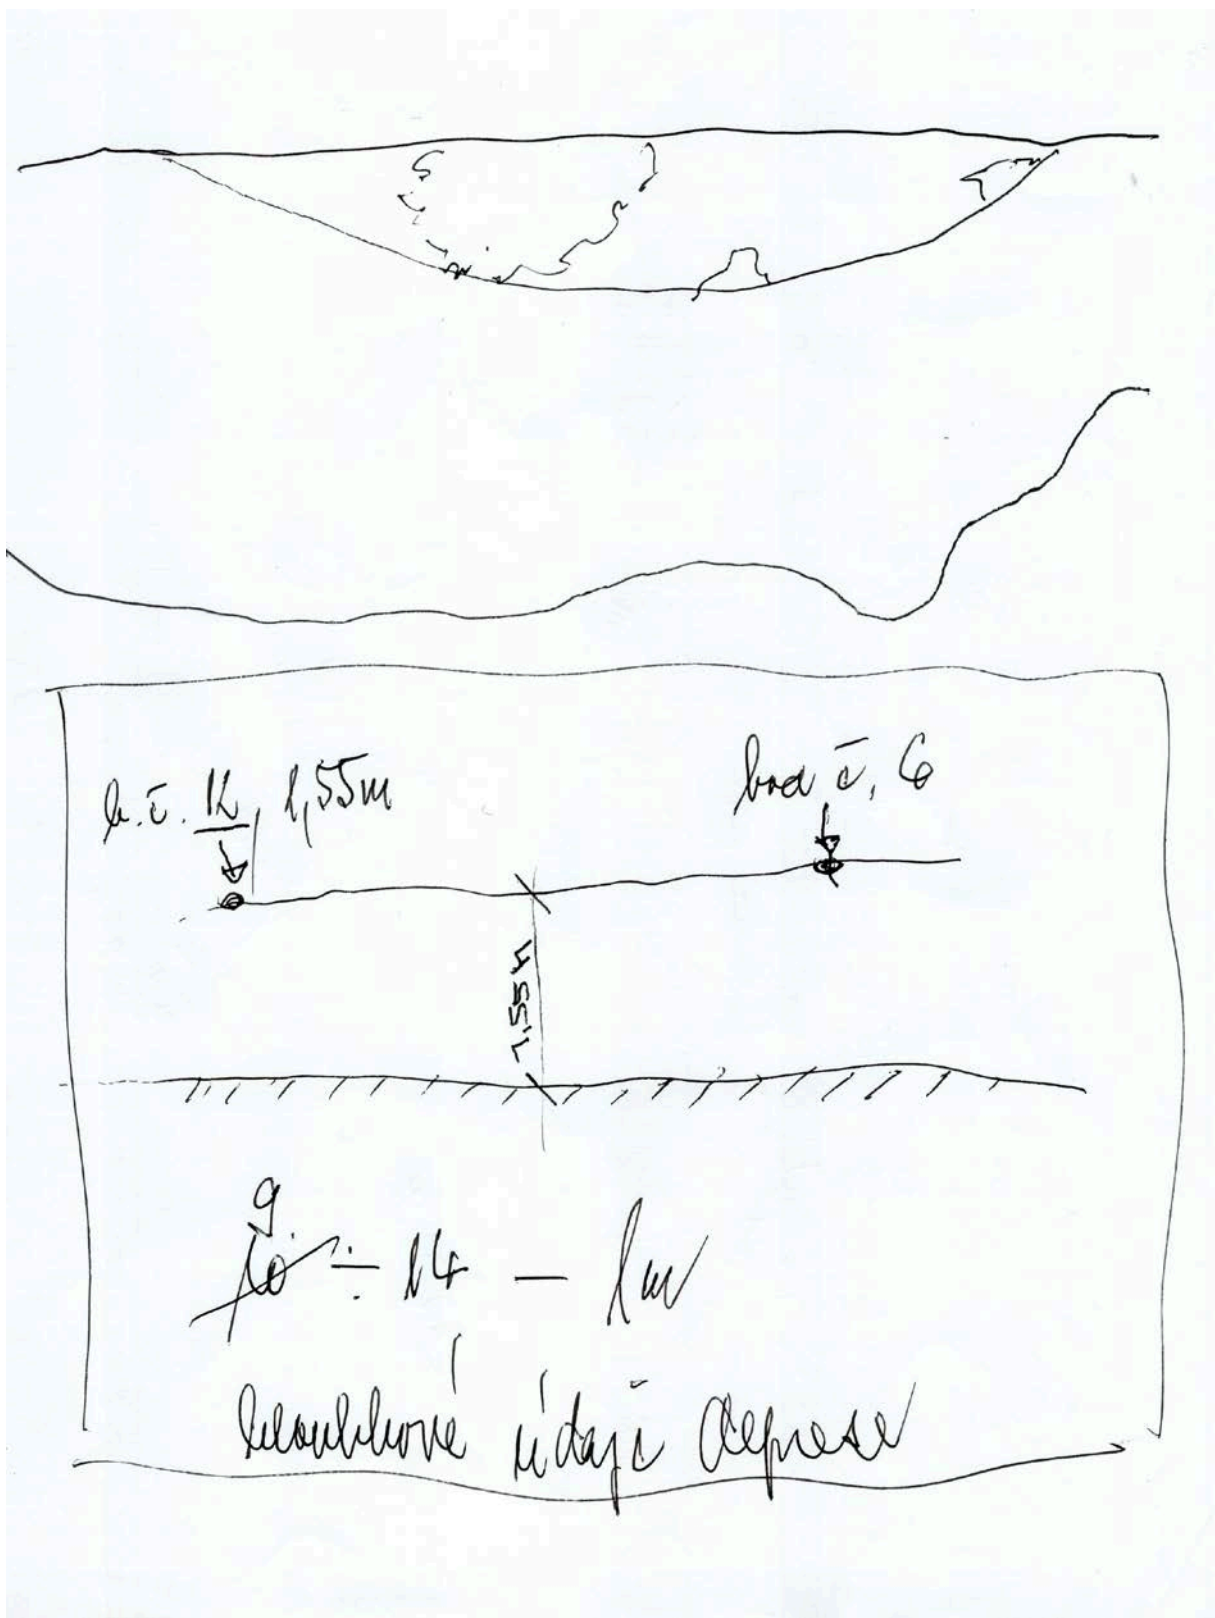 b.č. 12, 1,55m
bod č. 6
1,55 m
9
10 ÷ 14 – 1m
hloubkové údaje deprese